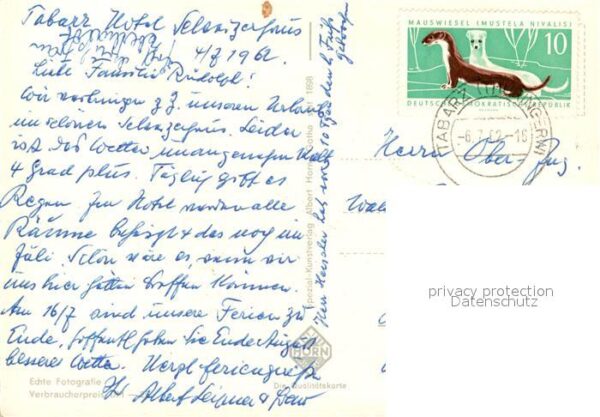 Tabarz Hotel Schweizerhaus
4/7 1962
Liebe Familie Rudolph!
Wir verbringen z.Z. unseren Urlaub
im schönen Schweizerhaus. Leider
ist das Wetter unangenehm kalt
4 Grad plus. Täglich gibt es
Regen. Im Hotel werden alle
Räume beheizt & das noch im
Juli. Schön wäre es, wenn wir
uns hier hätten treffen können.
Am 16/7 sind unsere Ferien zu
Ende, hoffentlich haben Sie Ende August
besseres Wetter. Herzl. Feriengrüße
Ihr Albert
Herr Kessler hat vor 10 Tagen
Echte Fotografie
Verbraucherpreis
HORN
Die Qualitätskarte
Spezial-Kunstverlag Albert Horn Gotha 1898
MAUSWIESEL (MUSTELA NIVALIS)
10
DEUTSCHE DEMOKRATISCHE REPUBLIK
TABARZ (THÜRINGERW)
-6.7.62-15
Herrn Ober-Ing.
privacy protection
Datenschutz